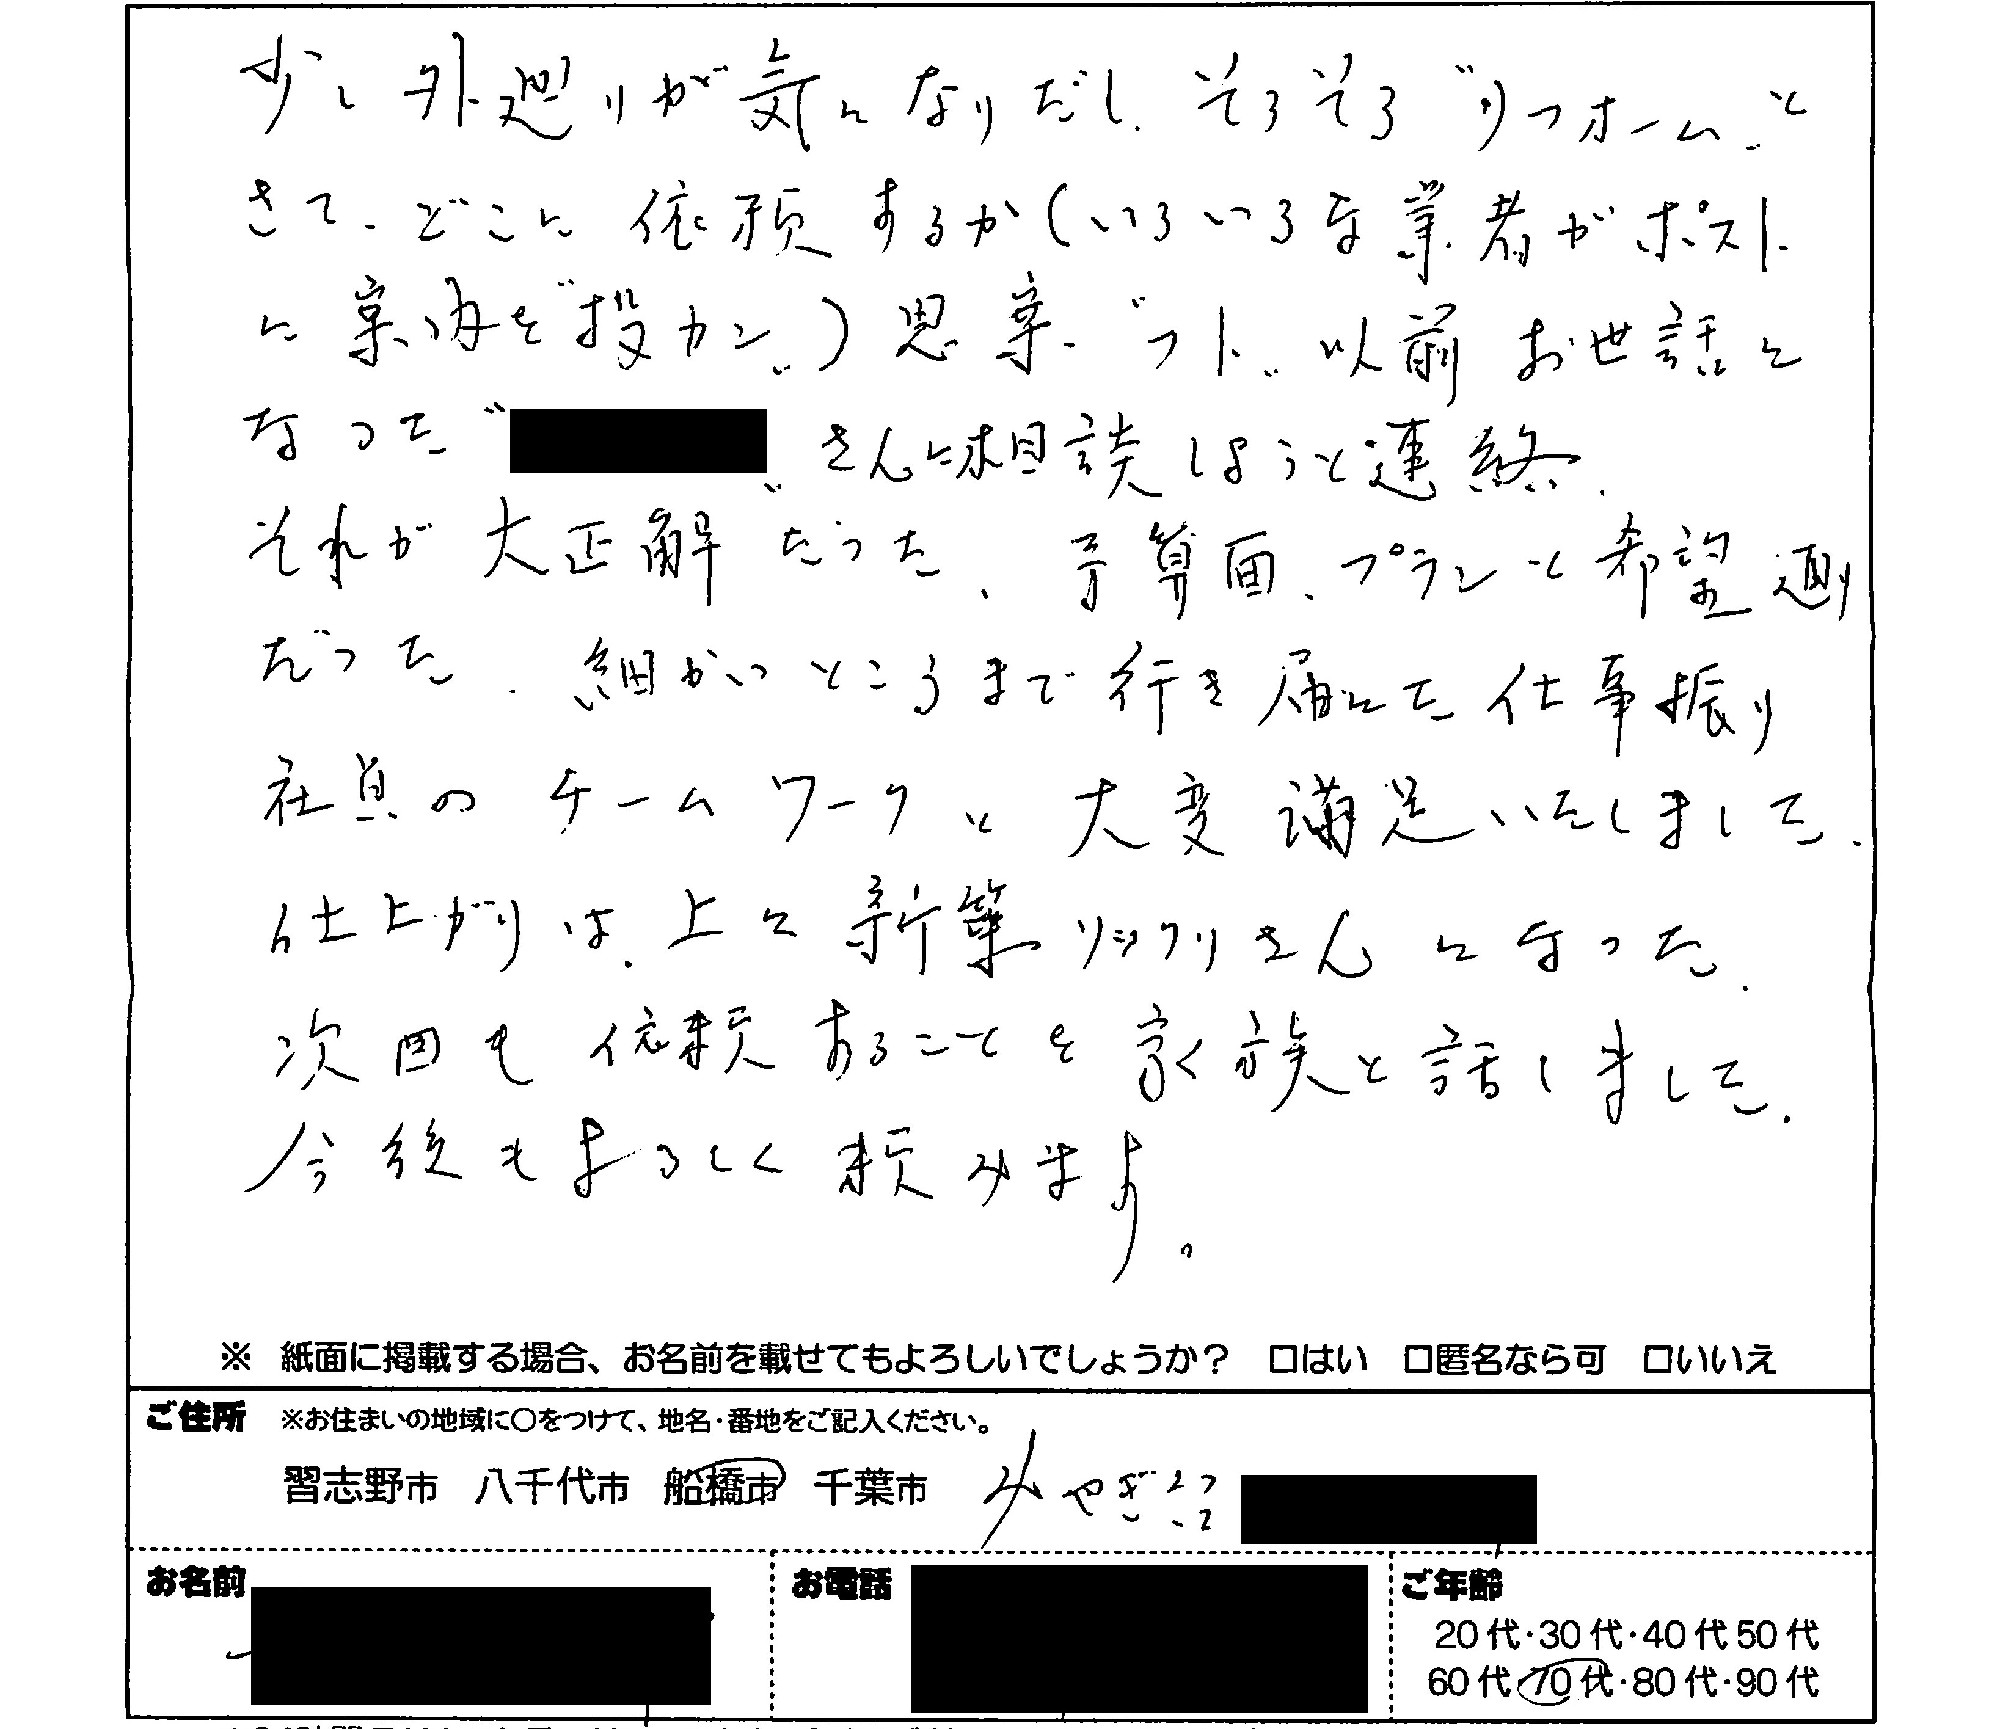 少し外廻りが気になりだし、そろそろ〝リフォーム〟と
さて、どこに依頼するか(いろいろな業者がポスト
に案内を〝投カン〟)思案、〝フト〟以前お世話に
なった〝
〟さんに相談しようと連絡、
それが大正解だった、予算面、プランと希望通り
だった、細かいところまで行き届いた仕事振り
社員のチームワークと大変満足いたしました、
仕上がりは、上々新築ソックリさんになった、
次回も依頼することを家族と話しました、
今後もよろしく頼みます。
※ 紙面に掲載する場合、お名前を載せてもよろしいでしょうか? □はい □匿名なら可 □いいえ
ご住所 ※お住まいの地域に○をつけて、地名・番地をご記入ください。
習志野市 八千代市 船橋市 千葉市 みやぎ台
お名前 お電話 ご年齢
20代・30代・40代50代
60代・70代・80代・90代